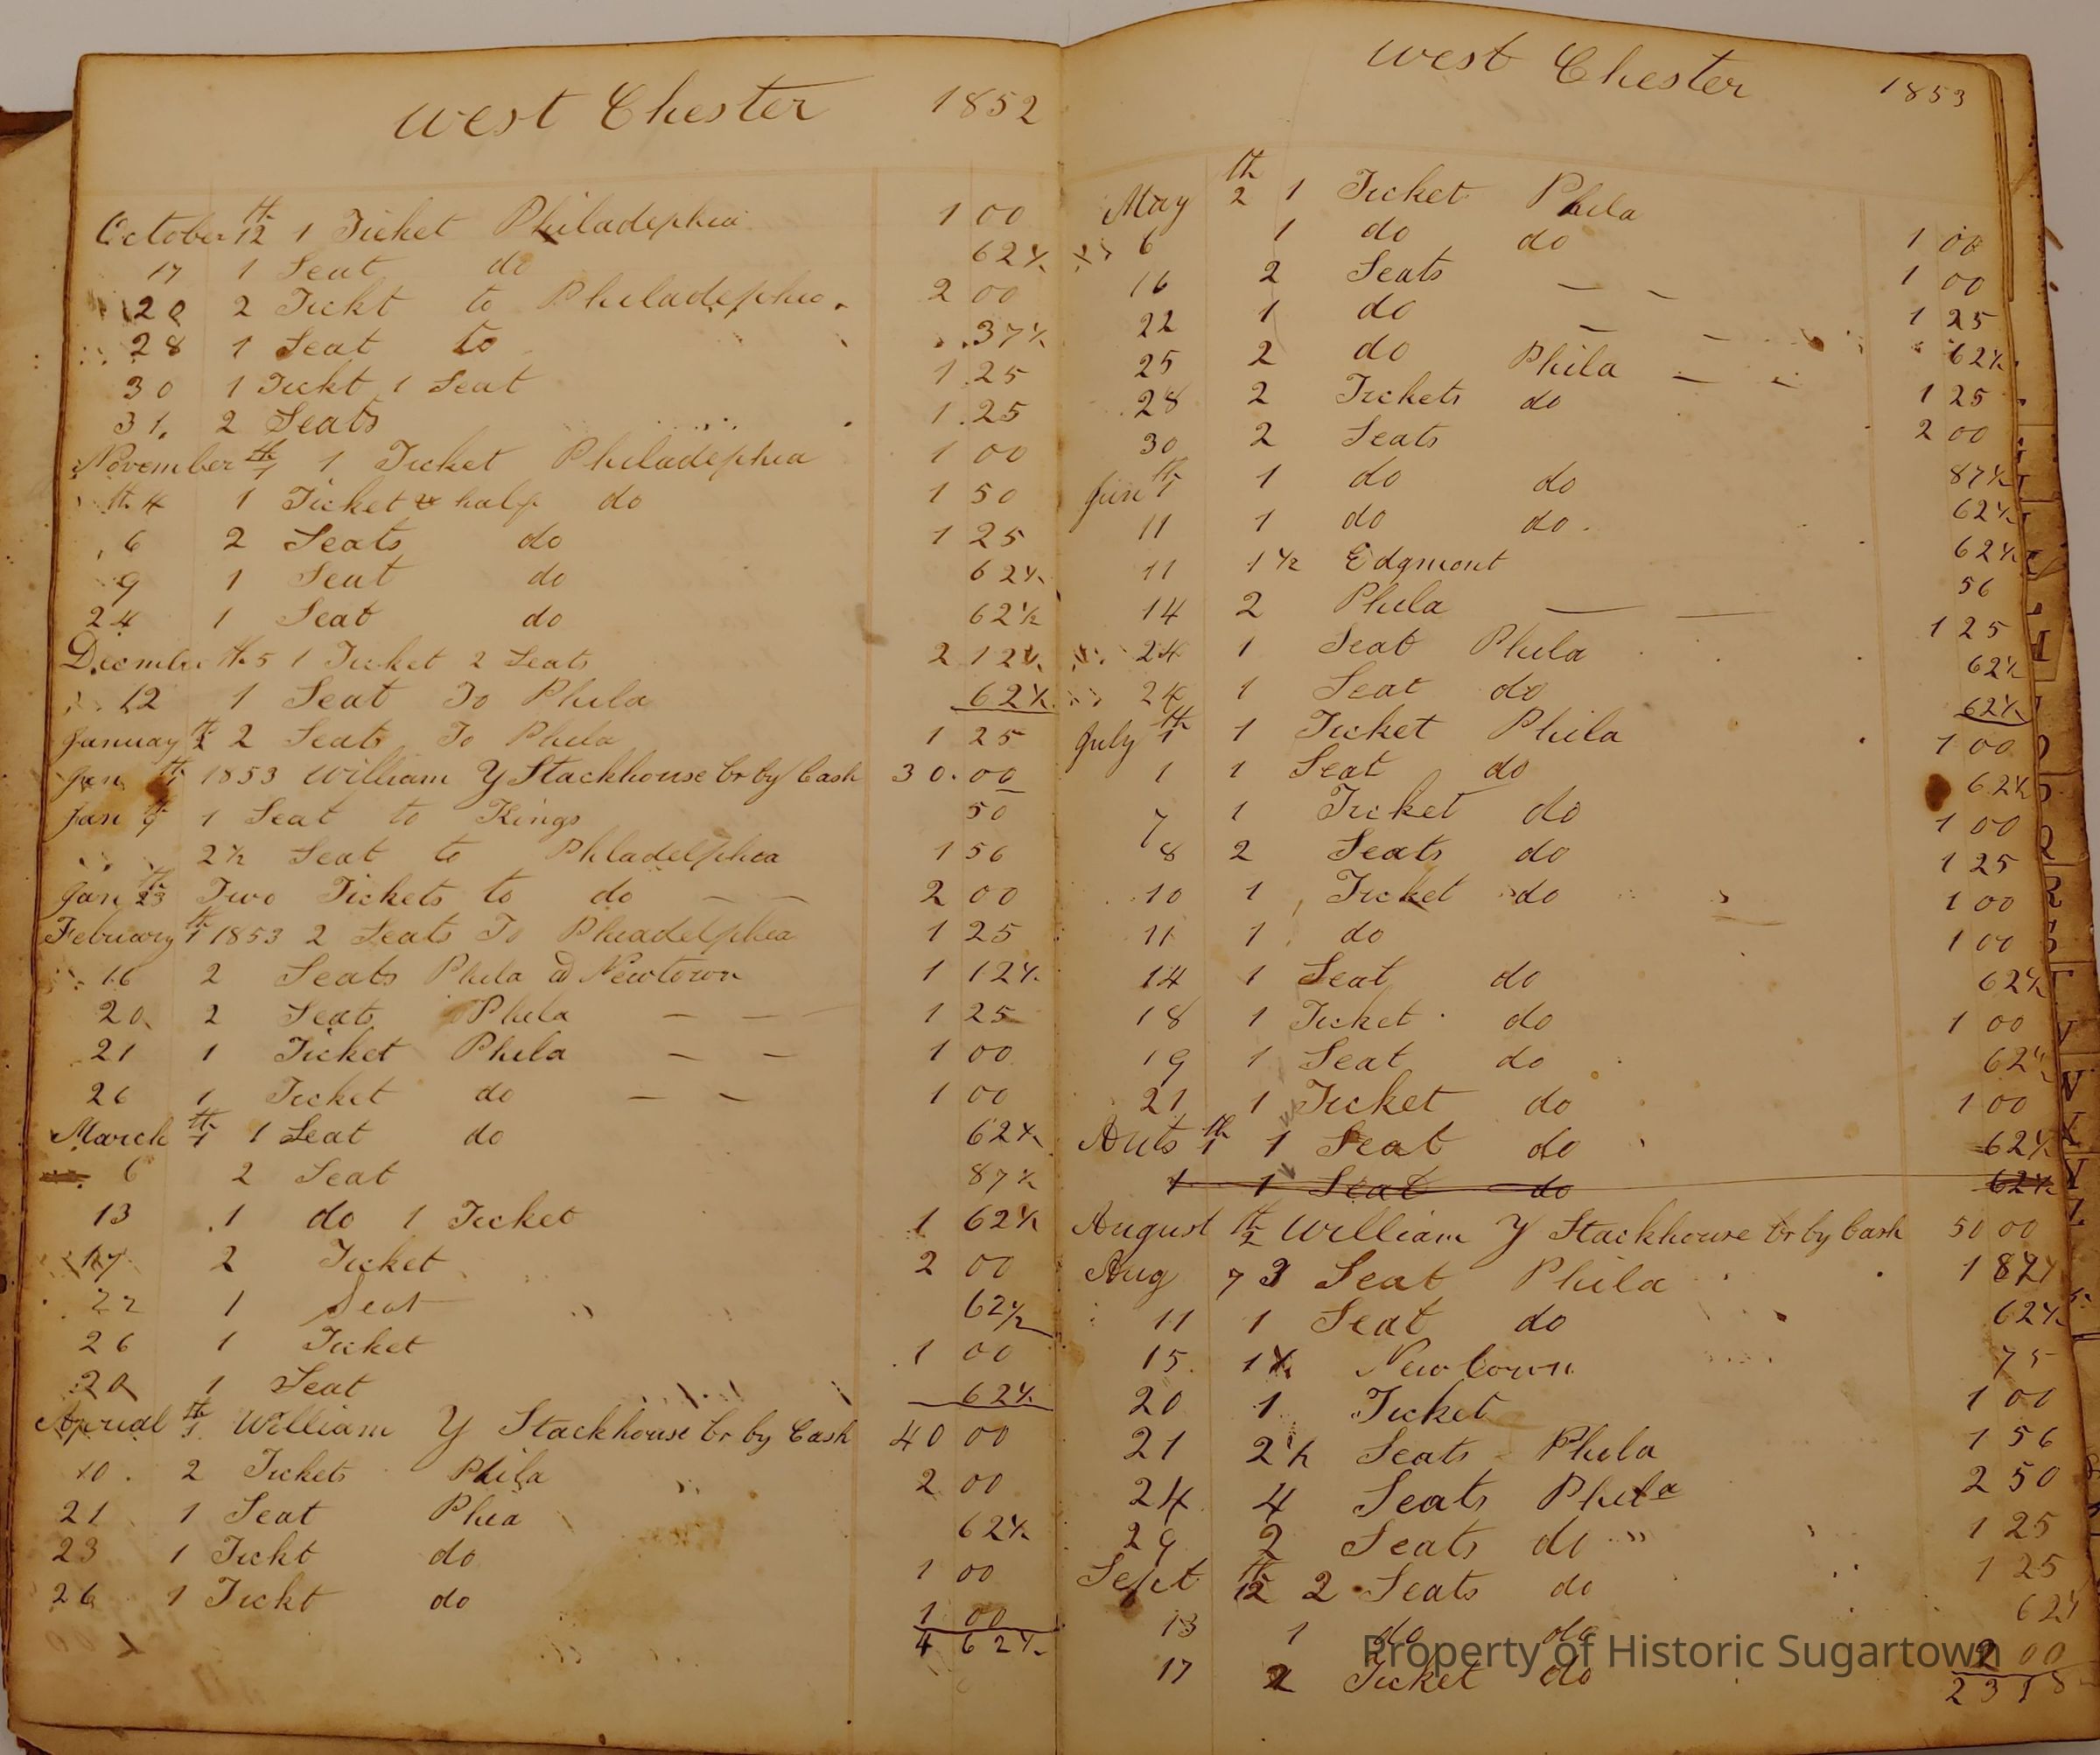 West Chester 1852
October th 12 1 Ticket Philadephia 1 00
17 1 Seat do 62½
20 2 Tickt to Philadephia 2 00
28 1 Seat to 37½
30 1 Tickt 1 Seat 1.25
31. 2 Seats 1.25
November th 1 1 Ticket Philadephia 1 00
th 4 1 Ticket & half do 1 50
6 2 Seats do 1 25
9 1 Seat do 62½
24 1 Seat do 62½
th 5 1 Ticket 2 Seats 2 12½
12 1 Seat To Phila 62½
January th 2 Seats To Phila 1 25
Jan th 1 1853 William Y Stackhouse Cr by Cash 30.00
Jan 9 1 Seat to Kings 50
2½ Seat to Phladelphia 1 56
Jan th 23 Two Tickets to do 2 00
February th 1 1853 2 Seats To Pheadelphea 1 25
16 2 Seats Phila @ Newtown 1 12½
20 2 Seats Phila 1 25
21 1 Ticket Phila 1 00
26 1 Ticket do 1 00
March th 1 1 Seat do 62½
6 2 Seat 87½
13 1 do 1 Ticket 1 62½
17 2 Ticket 2 00
22 1 Seat 62½
26 1 Ticket 1 00
1 Seat 62½
Aperial th 1 William Y Stackhouse Cr by Cash 40 00
10. 2 Tickets Phila 2 00
21 1 Seat Phia 62½
23 1 Tickt do 1 00
26 1 Tickt do 1 00
4 62½
West Chester 1853
May th 2 1 Ticket Phila 1 00
6 1 do do 1 00
16 2 Seats 1 25
22 1 do 62½
25 2 do Phila 1 25
28 2 Tickets do 2 00
30 2 Seats 87½
Jun th 1 1 do do 62½
11 1 do do 62½
11 1½ Edgmont 56
14 2 Phila 1 25
24 1 Seat Phila 62½
1 Seat do 62½
July th 1 1 Ticket Phila 1 00
1 1 Seat do 62½
7 1 Ticket do 1 00
8 2 Seats do 1 25
10 1 Ticket do 1 00
11 1 do 1 00
14 1 Seat do 62½
18 1 Ticket do 1 00
19 1 Seat do 62½
21 1 Ticket do 1 00
Auts th 1 1 Seat do 62½
1 1 Seat do 62½
August th 2 William Y Stackhouse Cr by Cash 50 00
Aug 7 3 Seat Phila 1 87½
11 1 Seat do 62½
15 1½ Newtown 75
20 1 Ticket 1 00
21 2½ Seats Phila 1 56
24 4 Seats Phila 2 50
29 2 Seats do 1 25
Sept th 12 2 Seats do 1 25
13 1 do do 62½
17 2 Ticket do 2 00
Property of Historic Sugartown